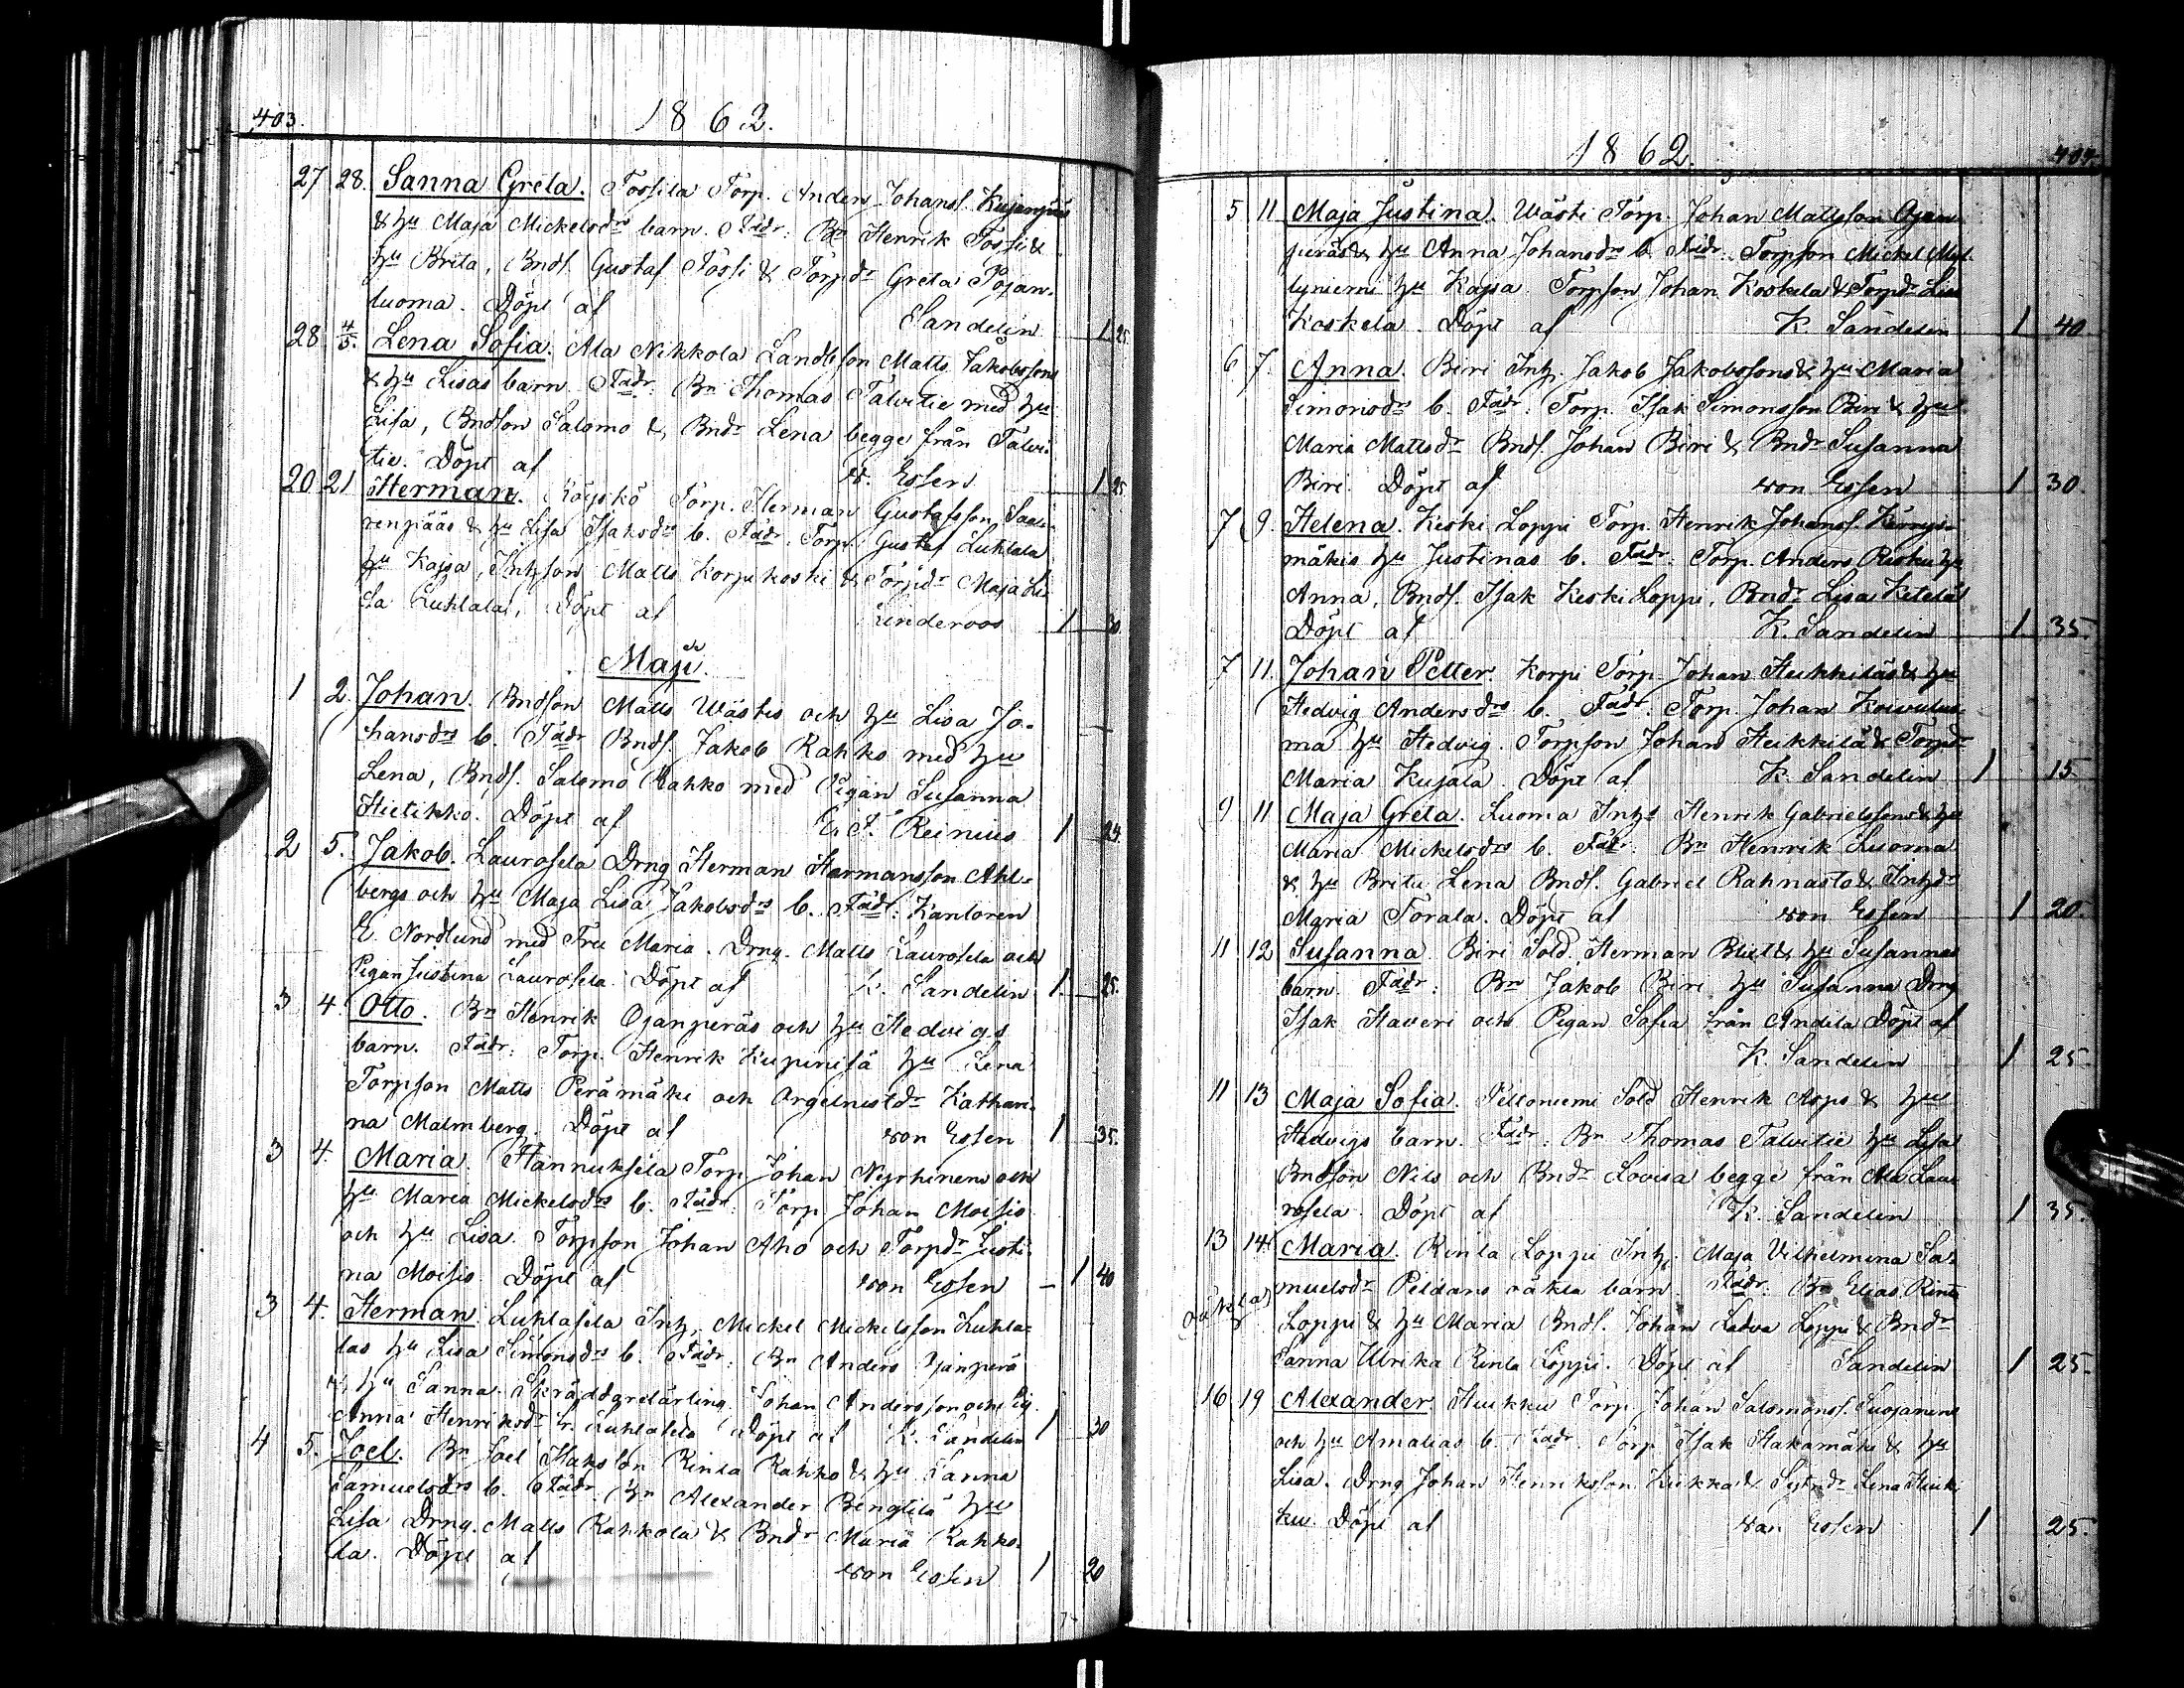 403.
1862.
27 28. Sanna Greta. Tossila Torp. Anders Johanss. Kujanpääs
& hu Maja Mickelsdrs barn. Fadr: Bn Henrik Tossi &
hu Brita, Bnds. Gustaf Tossi & Torpdr Greta Pojan-
luoma. Döpt af Sandelin 1 25.
28 4/5. Lena Sofia. Ala Nikkola Landbson Matts Jakobssons
& hu Lisas barn. Fadr: Bn Thomas Talvitie med hu
Lisa, Bndson Salomo & Bndr Lena begge från Talvi-
tie. Döpt af v. Essen 1 25
20 21 Herman. Köyskö Torp. Herman Gustafsson
renpääs & hu Lisa Isaksdrs b. Fadr. Torp. Gustaf Luhtala
hu Kajsa, Inhson Matts Korpikoski & Torpdr Maja Li-
sa Luhtala, Döpt af Linderoos 1 30.
Maji.
1 2. Johan. Bndson Matts Wästis och hu Lisa Jo-
hansdrs b. Fadr Bnds. Jakob Rahko med hu
Lena, Bnds. Salomo Rahko med Pigan Susanna
Hietikko. Döpt af E. F. Reinius 1 24.
2 5. Jakob. Laurosela Drng Herman Harmansson Ahl-
bergs och hu Maja Lisa Jakobsdrs b. Fadr: Kantoren
E. Nordlund med Fru Maria. Drng. Matts Laurosela och
Pigan Justina Laurosela. Döpt af K. Sandelin 1. 25.
3 4. Otto. Bn Henrik Ojanperäs och hu Hedvigs
barn. Fadr: Torp. Henrik Kupinisä hu Lena
Torpson Matts Perämäki och Orgelnistdr Kathari-
na Malmberg. Döpt af von Essen 1 35.
3 4. Maria. Hannuksela Torp. Johan Nyrhinens och
hu Maria Mickelsdrs b. Fadr: Torp Johan Moisio
och hu Lisa. Torpson Johan Aho och Torpdr Justi-
na Moisio. Döpt af von Essen 1 40
3 4. Herman. Luhtasela Inh. Mickel Mickelsson Luhta-
las hu Lisa Simonsdrs b. Fadr: Bn Anders Ojanperä
& hu Sanna. Skräddarelärling Johan Andersson och Pig.
Anna Henriksdr fr. Luhtasela Döpt af K. Sandelin 1 30
4 5. Joel. Bn Joel Isaksson Rinta Rahko & hu Sanna
Samuelsdrs b. Fadr. Bn Alexander Bengtilä hu
Lisa Drng. Matts Rahkola & Bndr Maria Rahko-
la. Döpt af von Essen 1 20
1862.
404.
5 11. Maja Justina. Wästi Torp. Johan Mattsson Ojan-
peräs & hu Anna Johansdrs b. Fadr. Torpson Mickel Myl-
lyniemi hu Kajsa. Torpson Johan Koskela & Torpdr Lisa
Koskela. Döpt af K. Sandelin 1 40.
6 7. Anna. Biri Inh. Jakob Jakobssons & hu Maria
Simonsdrs b. Fadr: Torp. Isak Simonsson Biri & hu
Maria Mattsdr Bnds. Johan Biri & Bndr Susanna
Biri. Döpt af von Essen 1 30.
7 9. Helena. Keski Loppi Torp. Henrik Johanss.
mäkis hu Justinas b. Fadr. Torp. Anders Risku hu
Anna, Bnds. Isak Keski Loppi, Bndr Lisa Ketelä
Döpt af K. Sandelin 1. 35.
7 11. Johan Petter. Korpi Torp. Johan Heikkiläs & hu
Hedvig Andersdrs b. Fadr. Torp. Johan Koivuluo-
ma hu Hedvig. Torpson Johan Heikkilä & Torpdr
Maria Kujala. Döpt af K. Sandelin 1 15
9 11 Maja Greta. Luoma Inhs Henrik Gabrielssons & hu
Maria Mickelsdrs b. Fadr: Bn Henrik Luoma
& hu Brita Lena Bnds. Gabriel Rahnasto & Inhdr
Maria Torala. Döpt af von Essen 1 20.
11 12 Susanna. Biri Sold. Herman Blixt & hu Susannas
barn. Fadr: Bn Jakob Biri hu Susanna Drng
Isak Haveri och Pigan Sofia från Andila Döpt af
K. Sandelin 1 25
11 13 Maja Sofia. Peltoniemi Sold Henrik Asps & hu
Hedvigs barn. Fadr: Bn Thomas Talvitie hu Lisa
Bndson Nils och Bndr Lovisa begge från Ala Lau-
rosela. Döpt af K. Sandelin 1 35.
13 14. Maria. Rinta Loppi Inh. Maja Vilhelmina Sa-
muelsdr Peldans oäkta barn. Fadr: Bn Elias Rinta
Loppi & hu Maria Bnds. Johan Latva Loppi & Bndr
Sanna Ulrika Rinta Loppi. Döpt af Sandelin 1 25.
16 19 Alexander. Huikku Torp. Johan Salomonss. Luojanens
och hu Amalias b. Fadr. Torp. Isak Hakamäki & hu
Lisa. Drng Johan Henriksson Kukka & Systrdr Lena Huik-
ku. Döpt af von Essen 1 25.